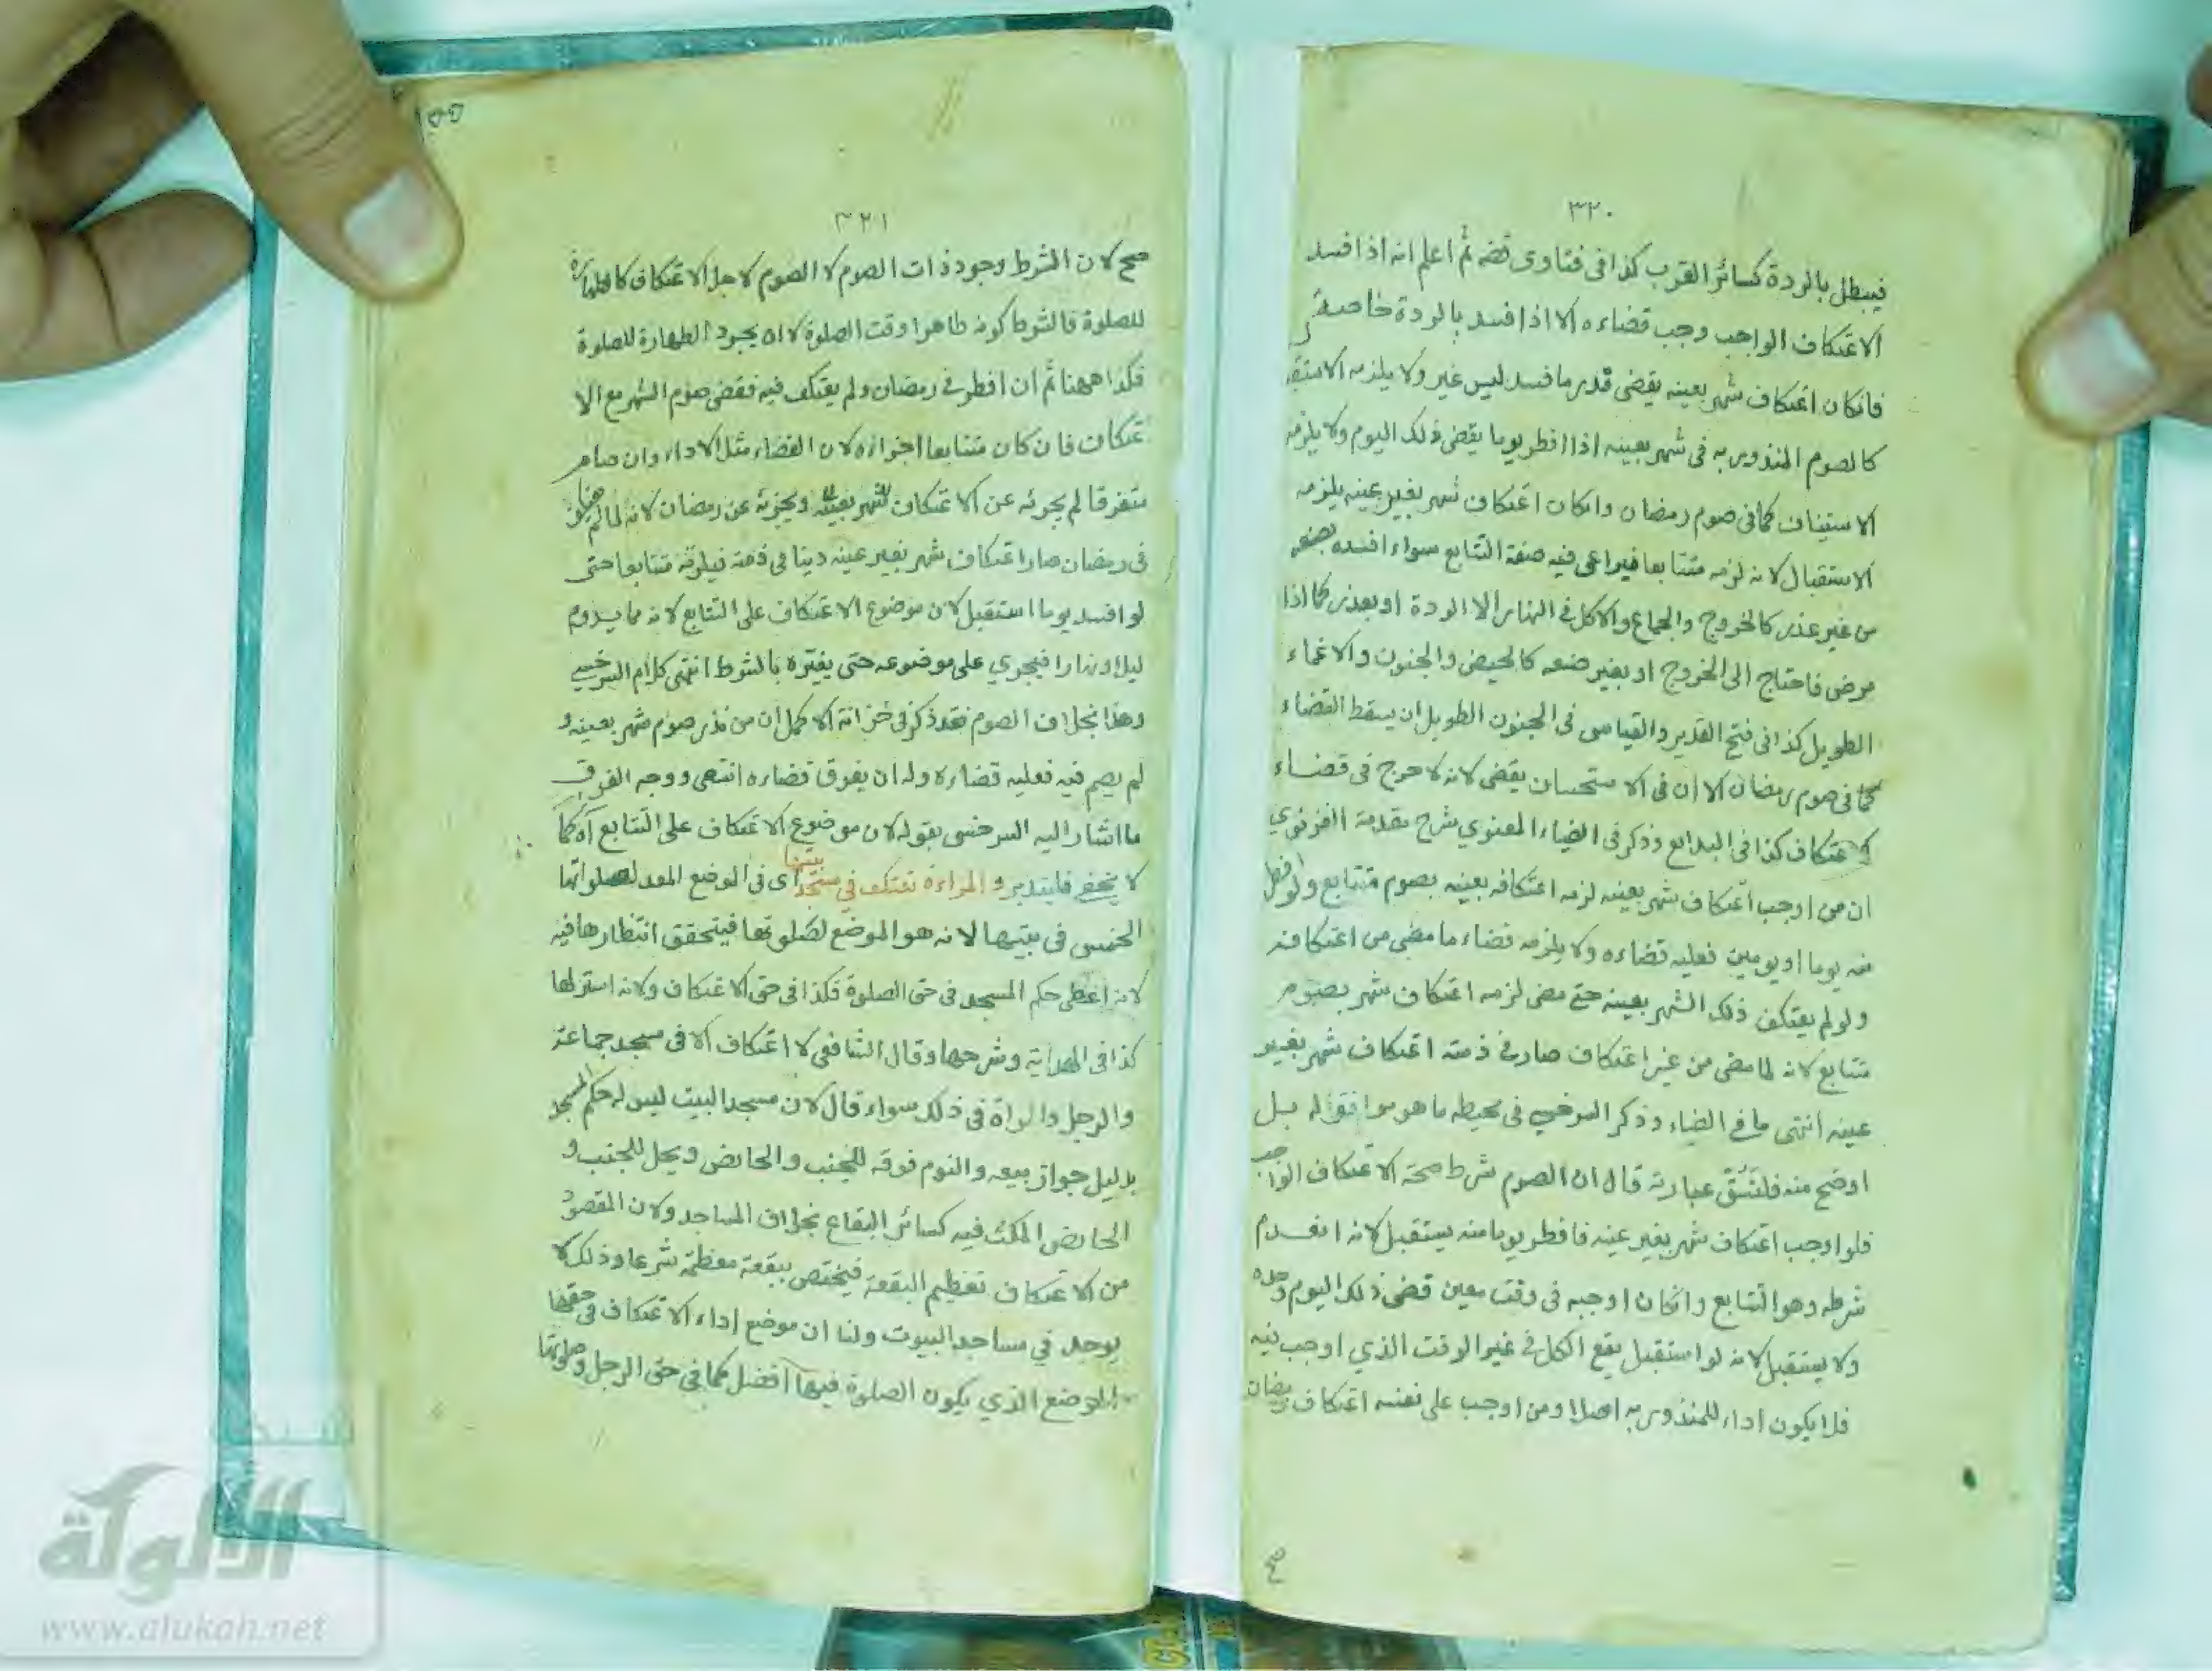 ٣٢٠
فيبطل بالردة كسائر القرب كذا فى فتاوى قضه ثم اعلم انه اذا افسد
الاعتكاف الواجب وجب قضاءه الا اذا افسد بالردة خاصة
فانكان اعتكاف شهر بعينه يقضى قدر ما فسد ليس غير ولا يلزمه الاستقبا
كالصوم المنذور به فى شهر بعينه اذا افطر يوما يقضى ذلك اليوم ولا يلزمه
الاستيناف كما فى صوم رمضان وانكان اعتكاف شهر بغير عينه يلزمه
الاستقبال لانه لزمه متتابعا فيراعى فيه صفة التتابع سواء افسده بصنعه
من غير عذر كالخروج والجماع والاكل فى النهار الا الردة او بعذر كما اذا
مرض فاحتاج الى الخروج او بغير صنعه كالحيض والجنون والاغماء
الطويل كذا فى فتح القدير والقياس فى الجنون الطويل ان يسقط القضاء
كما فى صوم رمضان الا ان فى الاستحسان يقضى لانه لا حرج فى قضاء
الاعتكاف كذا فى البدائع وذكر فى الضياء المعنوي شرح مقدمة الغزنوي
ان من اوجب اعتكاف شهر بعينه لزمه اعتكافه بعينه بصوم متتابع ولو افطر
منه يوما او يومين فعليه قضاءه ولا يلزمه قضاء ما مضى من اعتكافه
ولو لم يعتكف ذلك الشهر بعينه حتى مضى لزمه اعتكاف شهر بصوم
متتابع لانه لما مضى من غير اعتكاف صار فى ذمته اعتكاف شهر بغير
عينه انتهى ما فى الضياء وذكر السرخسي فى محيطه ما هو موافق له بل
اوضح منه فلنسق عبارته قال ان الصوم شرط صحة الاعتكاف الواجب
فلو اوجب اعتكاف شهر بغير عينه فافطر يوما منه يستقبل لانه انعدم
شرطه وهو التتابع وانكان اوجبه فى وقت معين قضى ذلك اليوم وحده
ولا يستقبل لانه لو استقبل يقع الكل فى غير الوقت الذي اوجب فيه
فلا يكون اداء للمنذور به اصلا ومن اوجب على نفسه اعتكاف رمضان
٣٢١
صح لان الشرط وجود ذات الصوم لا الصوم لاجل الاعتكاف كالطهارة
للصلوة فالشرط كونه طاهرا وقت الصلوة لا ان يجود الطهارة للصلوة
فكذا ههنا ثم ان افطر فى رمضان ولم يعتكف فيه فقضى صوم الشهر مع الا
عتكاف فان كان متتابعا اجزاءه لان القضاء مثل الاداء وان صام
متفرقا لم يجزئه عن الاعتكاف شهر بعينه ويجزئه عن رمضان لانه لما لم
فى رمضان صار اعتكاف شهر بغير عينه دينا فى ذمته فيلزمه متتابعا حتى
لو افسد يوما استقبل لان موضوع الاعتكاف على التتابع لانه مما يدوم
ليلا ونهارا فيجري على موضوعه حتى يغيره بالشرط انتهى كلام السرخسي
وهذا بخلاف الصوم فقد ذكر فى خزانة الاكمل ان من نذر صوم شهر بعينه و
لم يصم فيه فعليه قضاءه وله ان يفرق قضاءه انتهى ووجه الفرق
ما اشار اليه السرخسى بقوله لان موضوع الاعتكاف على التتابع آه كما
لا يخفى فليتدبر و المراءة تعتكف فى مسجد بيتها اى فى الموضع المعد لصلواتها
الخمس فى بيتها لانه هو الموضع لصلوتها فيتحقق انتظارها فيه
لانه اعطى حكم المسجد فى حق الصلوة فكذا فى حق الاعتكاف ولانه استر لها
كذا فى الهداية وشرحها وقال الشافعى لا اعتكاف الا فى مسجد جماعة
والرجل والمراة فى ذلك سواء قال لان مسجد البيت ليس له حكم المسجد
بدليل جواز بيعه والنوم فوقه للجنب والحائض ويحل للجنب و
الحائض المكث فيه كسائر البقاع بخلاف المساجد ولان المقصود
من الاعتكاف تعظيم البقعة فيختص ببقعة معظمة شرعا وذلك لا
يوجد فى مساجد البيوت ولنا ان موضع اداء الاعتكاف فى حقها
الموضع الذي يكون الصلوة فيها افضل كما فى حق الرجل وصلوتها
الألوكة
www.alukah.net